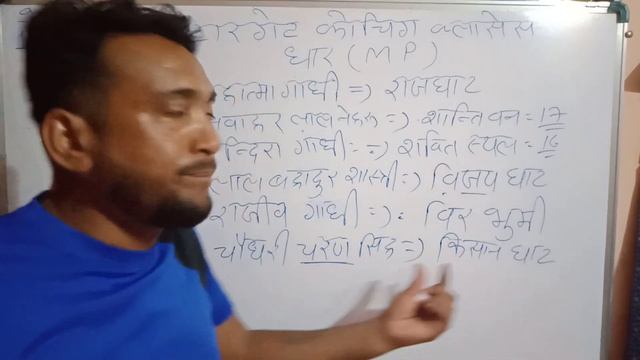 टारगेट कोचिंग क्लासेस
धार (MP)
महात्मा गांधी => राजघाट
जवाहर लाल नेहरू => शान्ति वन = 17
इन्दिरा गांधी => शक्ति स्थल = 16
लाल बहादुर शास्त्री => विजय घाट
राजीव गांधी => विर भुमी
चौधरी चरण सिंह => किसान घाट